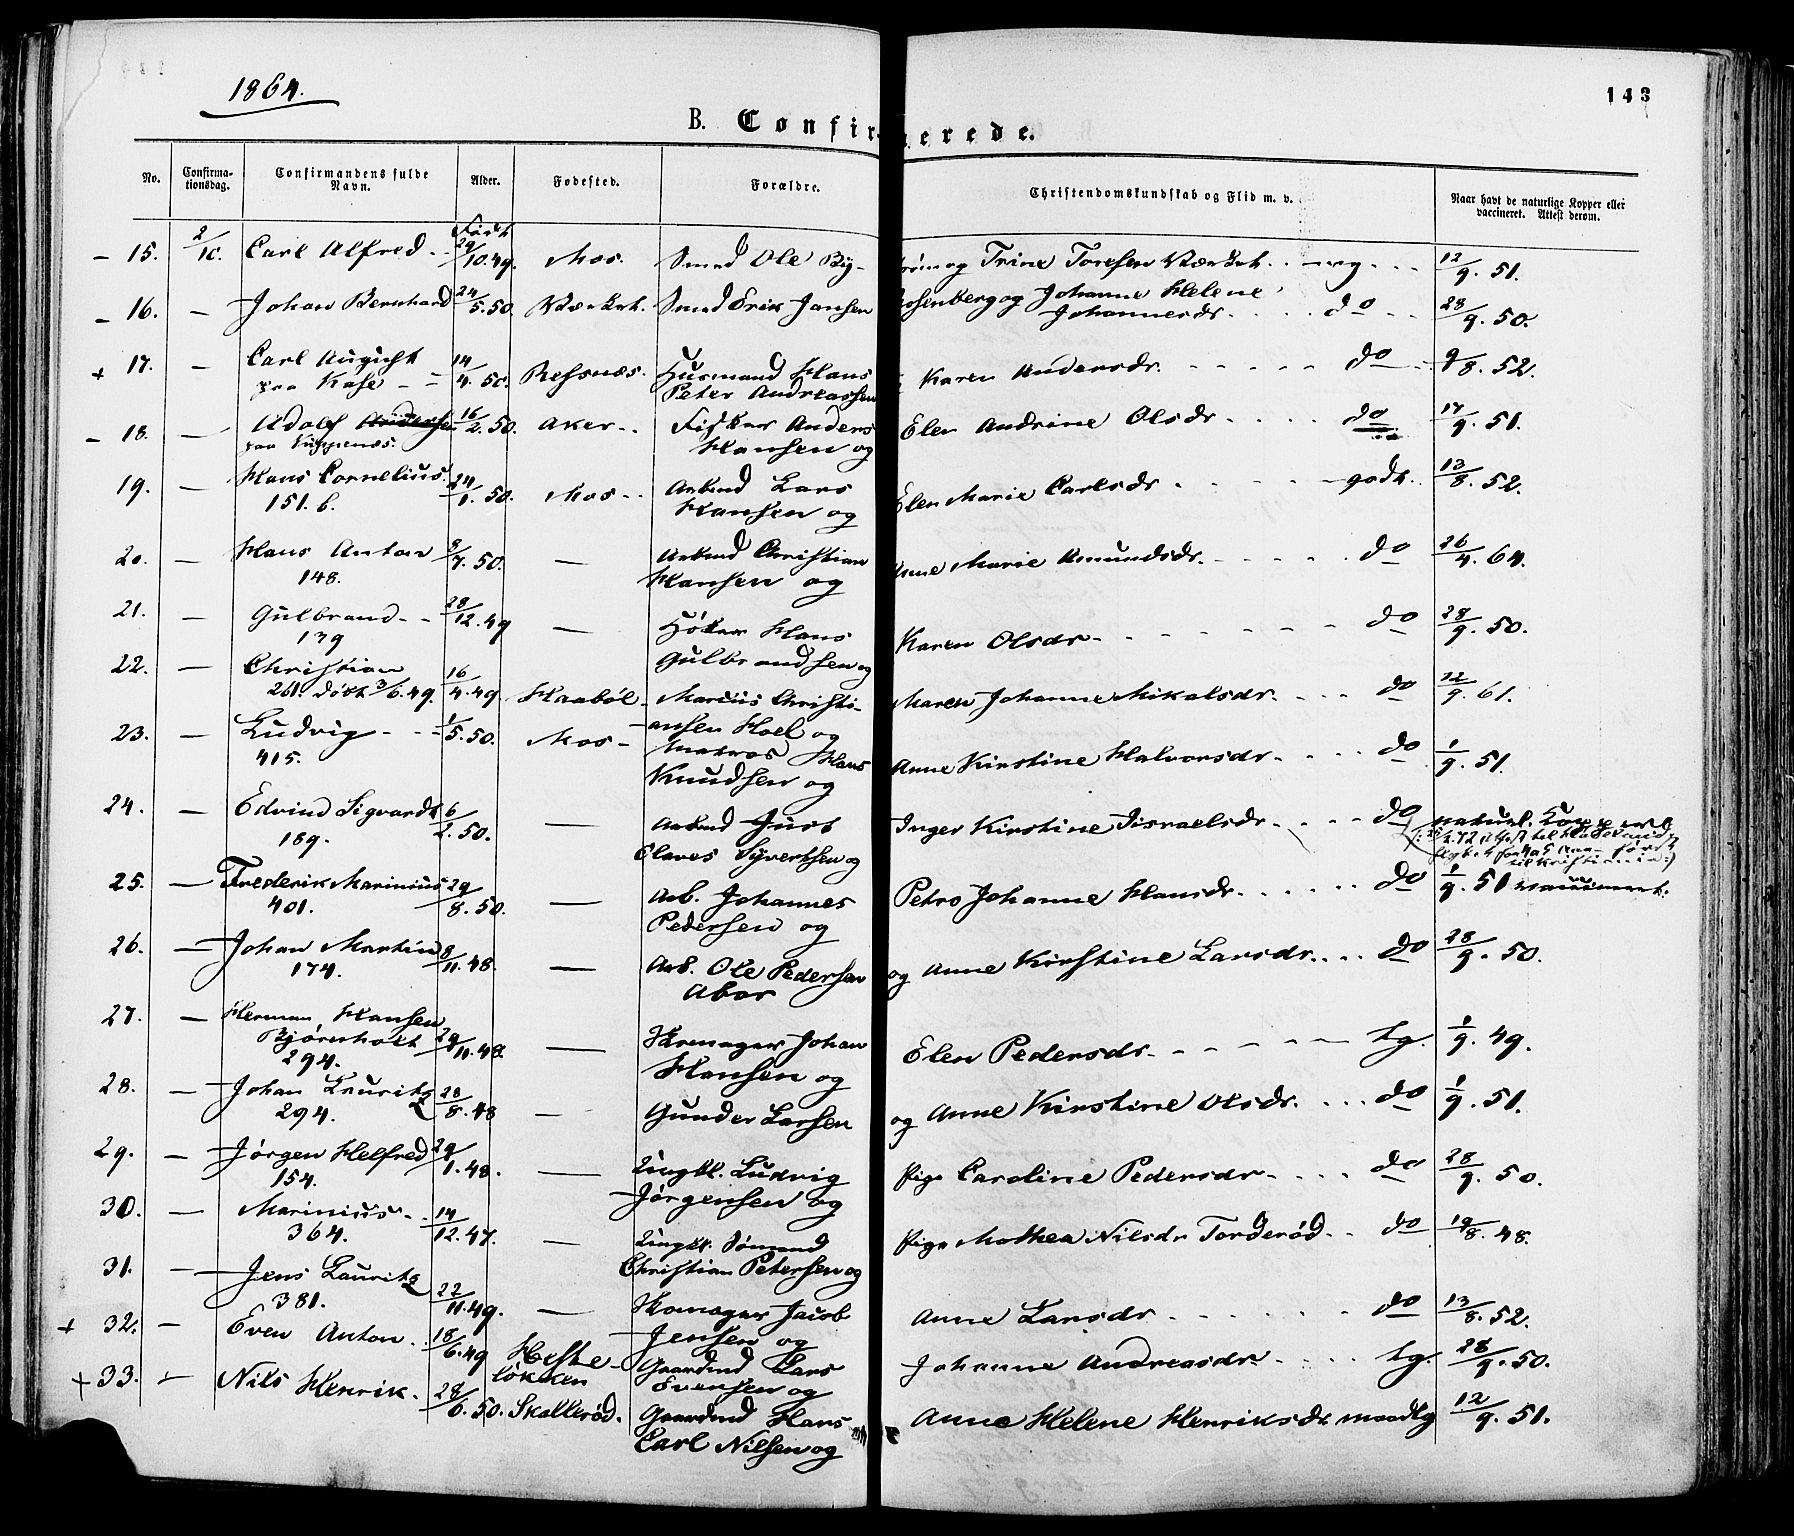 1864.
143
B. Confirmerede.
No.
Confirma-
tionsdag.
Confirmandens fulde
Navn.
Alder.
Fødested.
Forældre.
Christendomskundskab og Flid m. v.
Naar havt de naturlige Kopper eller
vaccineret. Attest derom.
Født
- 15. 2/10. Carl Alfred - - 29/10.49. Mos. Smed Ole By- og Trine Toresen - - 12/9. 51.
- 16. — Johan Bernhard 24/5.50. Smed Erik Jansen Rosenberg og Johanne Helene
Johannesdr. - - - do - - 28/9. 50.
+ 17. — Carl August 14/4.50. Refsnæs. Husmand Hans Karen Andersdr. - - - do - - 9/8. 52.
paa Kase - - Peter Andreassen
- 18. — Adolf Andersen 16/2.50. Aker - - Fisker Anders Elen Andrine Olsdr - - - do 17/9. 51.
paa Hansen og
19. — Hans Cornelius. 24/1.50. Mos - - Arbmd Lars Elen Marie Carlsdr - - - godt. 13/8. 52.
151. b. Hansen og
20. — Hans Anton 9/7.50. — Arbmd Christian Anne Marie Amundsdr. - - - do 26/4. 64.
148. Hansen og
21. — Gulbrand - - 28/12.49 — Høker Hans Karen Olsdr - - - do 28/9. 50.
139 Gulbrandsen og
22. — Christian 16/4.49. Kaabøl - Marius Christi- Maren Johanne Mikalsdr. - - - do 12/9. 61.
261. døbt 3/6.49. ansen Hoel og
23. — Ludvig - - - 1/5.50. Mos - Matros Hans Anne Kirstine Halvorsdr - - - do 1/9. 51.
415. Knudsen og
24. — Edvind Sigvardt 6/2.50. — Arbmd Just Inger Kirstine Israelsdr - - - do naturl. Kopper
189. Claves Syvertsen og
25. — Frederik Marinius 29/8.50. — Arb. Johannes Petro Johanne Hansdr - - - do 1/9. 51 vaccineret.
401. Pedersen og
26. — Johan Martin 8/11.48. — Arb. Ole Pedersen og Anne Kirstine Larsdr. - - - do 28/9. 50.
174. Abor
27. — Herman Hansen
Bjørnholt 29/11.48. — Skomager Johan Elen Pedersdr. - - - tg. 1/9. 49.
294. Hansen og
28. — Johan Lauritz 28/8.48 — Gunder Larsen og Anne Kirstine Olsdr. - - - do 1/9. 51.
294.
29. — Jørgen Helfred 29/1.48. — Ungk. Ludvig Pige Caroline Pedersdr - - - do 28/9. 50.
154. Jørgensen og
30. — Marinius - - 14/12.47. — Ungk. Sømand Pige Mathea Nilsdr Torderød - - do 19/8. 48.
364. Christian Petersen og
31. — Jens Lauritz 22/11.49. — Skomager Jacob Anne Larsdr - - - do 13/8. 52.
381. Jensen og
+ 32. — Even Anton. 18/6.49 Heste- Gaardmd Lars Johanne Andreasdr. - - - tg. 28/9. 50.
løkken Evensen og
+ 33. — Nils Henrik. 28/6.50. Skallerød. Gaardmd Hans Anne Helene Henriksdr maadlg 12/9. 51.
Carl Nilsen og